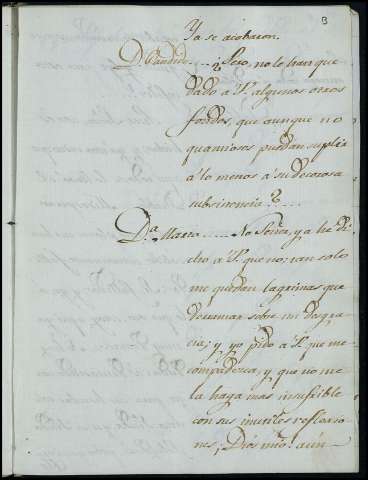 3
Ya se acabaron.
D. Candido.....¿Pero, no le han que
dado a V. algunos otros
fondos, que aunque no
quantiosos puedan suplir
a lo menos a su decorosa
subsistencia?....
D.a Marta.....No Señor, ya he di
cho a V. que no; tan solo
me quedan lagrimas que
derramar sobre mi desgra
cia; y yo pido a V. que me
compadezca, y que no me
la haga mas insufrible
con sus inutiles reflexio
nes; Dios mio! aún